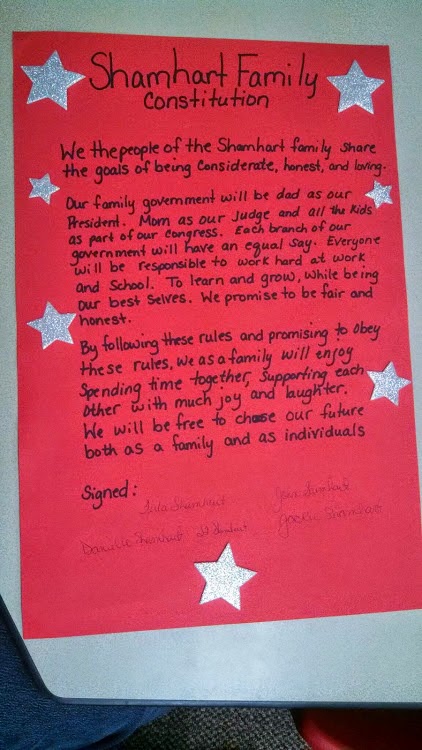 Shamhart Family
Constitution
We the people of the Shamhart family share
the goals of being Considerate, honest, and loving.
Our family government will be dad as our
President. Mom as our Judge and all the Kids
as part of our Congress. Each branch of our
government will have an equal say. Everyone
will be responsible to work hard at work
and School. To learn and grow, while being
our best selves. We promise to be fair and
honest.
By following these rules and promising to obey
these rules, we as a family will enjoy
Spending time together, Supporting each
other with much joy and laughter.
We will be free to choose our future
both as a family and as individuals
Signed:
Shamhart
Danielle Shamhart Shamhart